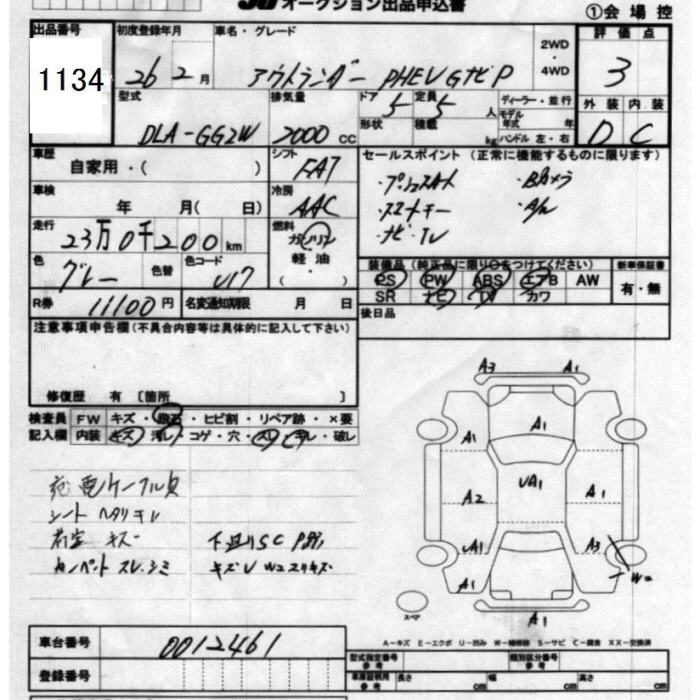 オークション出品申込書
①会場控
出品番号 初度登録年月 車名・グレード 2WD・4WD 評価点
1134 26 2月 アウトランダー PHEV GナビP 3
型式 排気量 ドア 定員 ディーラー・並行 外装 内装
DLA-GG2W 2000CC 5 5人 モデル年式 年 D C
形状 積載 kg ハンドル 左・右
車歴 シフト セールスポイント (正常に機能するものに限ります)
自家用・( ) FAT
車検 冷房
年 月( 日) AAC
・スマートキー ・A/W
・ナビ・TV
走行 燃料
23万0千200km ガソリン
軽油
( ・ )
色 色替 色コード
グレー U17
装備品 (純正品に限り○をつけてください) 新車保証書
PS PW ABS エアB AW 有・無
SR ナビ TV カワ
R券 11100円 名変通知期限 月 日
後日品
注意事項申告欄(不具合内容等は具体的に記入して下さい)
修復歴 有 〔箇所 〕
検査員 FW キズ・飛石・ヒビ割・リペア跡・×要
記入欄 内装 キズ・汚レ・コゲ・穴・スレ・キレ・破レ
充電ケーブル負
シート ヘタリ キレ
荷室 キズ 下廻りSC
カーペット スレ・シミ キズU W2スリキズ
A3 A1
A1
A1 A1
A2 UA1 A1
UA1 A3
W2
A1
A1
スペア
A-キズ E-エクボ U-凹み W-補修跡 S-サビ C-腐食 XX-交換済
車台番号 0012461
型式指定番号 参考 類別区分番号 参考
登録番号
車庫証明用 参考 長さ cm 幅 cm 高さ cm